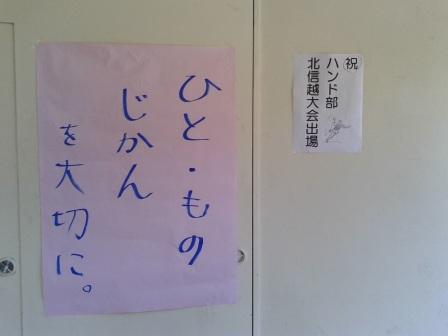 ㊗
ハンド部
北信越大会出場
ひと・もの
じかん
を大切に。